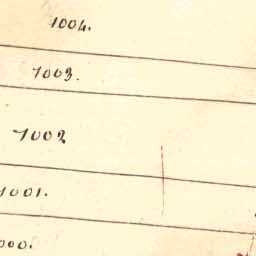 1004.
1003.
1002
1001.
000.